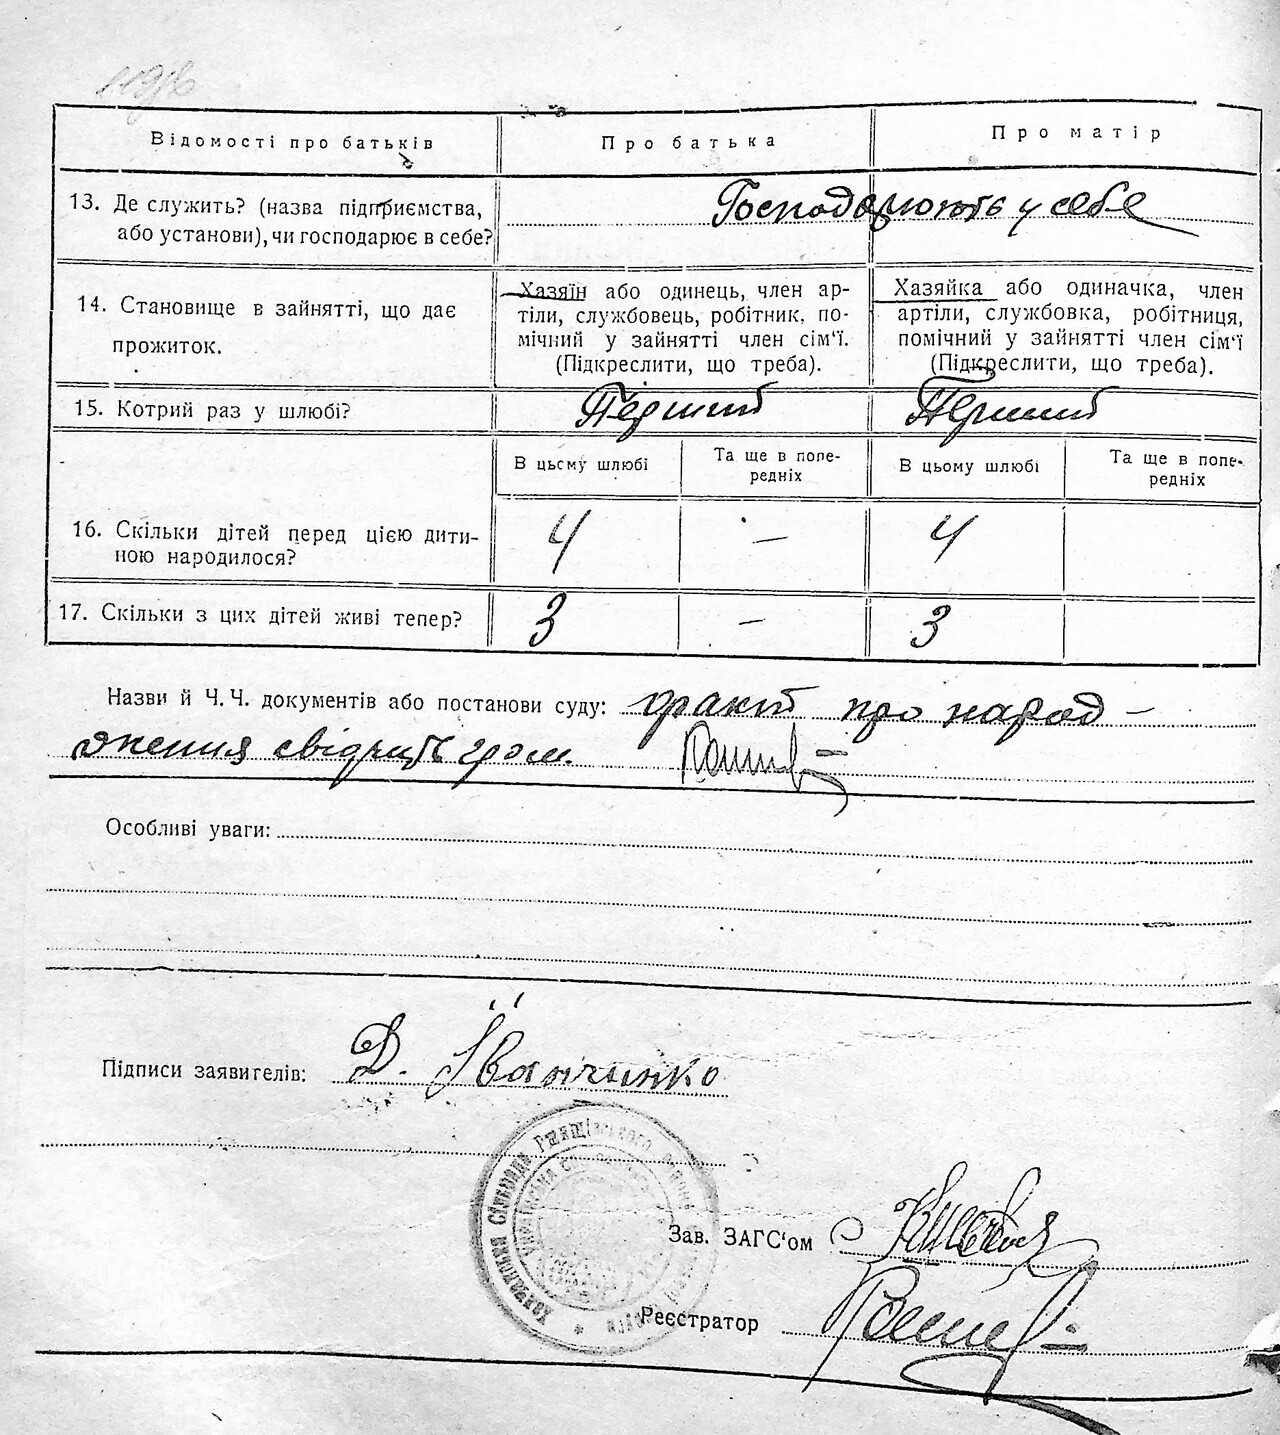 119/в
Відомості про батьків
Про батька
Про матір
13. Де служить? (назва підприємства,
або установи), чи господарює в себе?
Господарюють у себе
14. Становище в зайнятті, що дає
прожиток.
Хазяїн або одинець, член ар-
тіли, службовець, робітник, по-
мічний у зайнятті член сім'ї.
(Підкреслити, що треба).
Хазяйка або одиначка, член
артіли, службовка, робітниця,
помічний у зайнятті член сім'ї
(Підкреслити, що треба).
15. Котрий раз у шлюбі?
Перший
Перший
В цьому шлюбі
Та ще в попе-
редніх
В цьому шлюбі
Та ще в попе-
редніх
16. Скільки дітей перед цією дити-
ною народилося?
4
—
4
17. Скільки з цих дітей живі тепер?
3
—
3
Назви й Ч. Ч. документів або постанови суду: факт про народ-
ження свідчить гром.
Особливі уваги:
Підписи заявителів: Д. Іванченко
сільрада Ржищівського району
Зав. ЗАГС'ом
Реєстратор